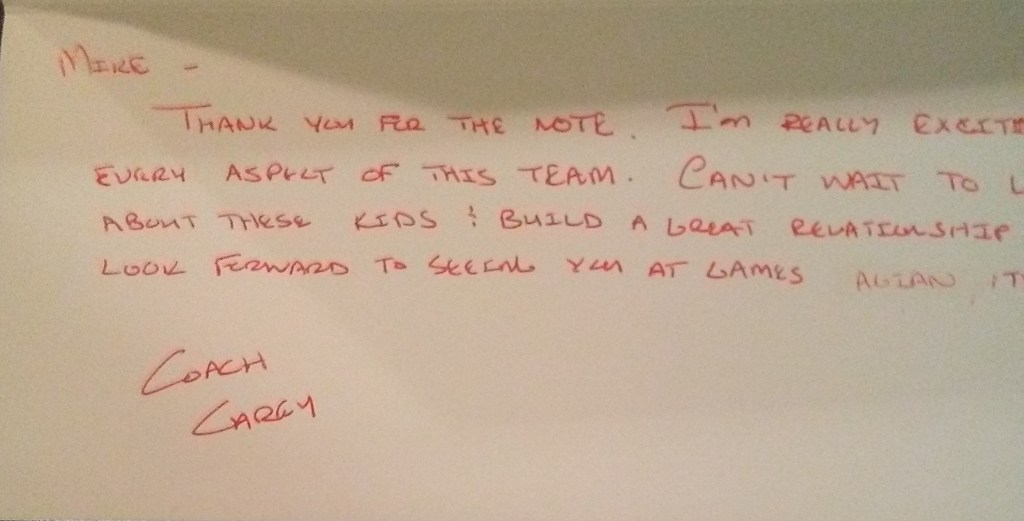 MIKE -
THANK YOU FOR THE NOTE. I'm REALLY EXCITE
EVERY ASPECT OF THIS TEAM. CAN'T WAIT TO L
ABOUT THESE KIDS & BUILD A GREAT RELATIONSHIP
LOOK FORWARD TO SEEING YOU AT GAMES AGIAN, IT
COACH
CAREY